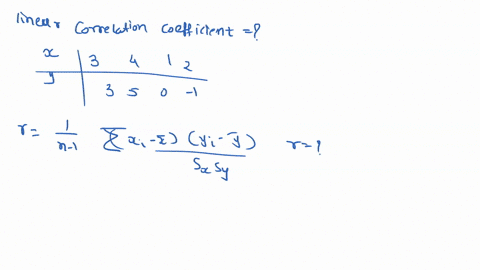 linear correlation coefficient = ?
x | 3 4 1 2
y | 3 5 0 -1
r = 1/(n-1) Σ(xi - x̄)(yi - ȳ) / SxSy r = ?